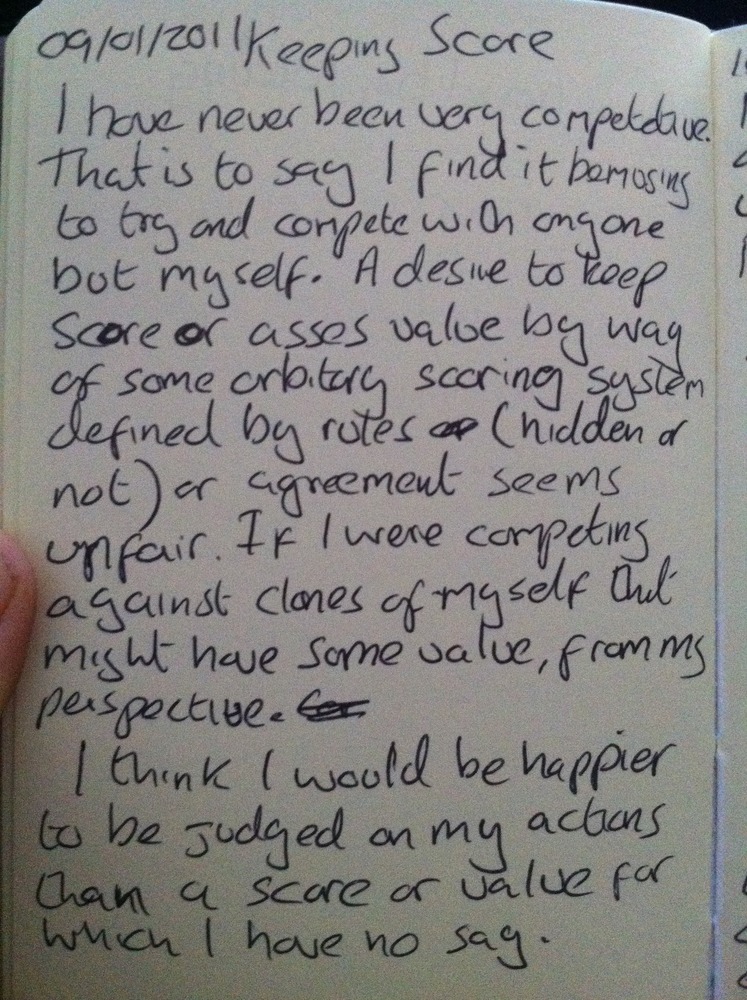 09/01/2011 Keeping Score
I have never been very competetive.
That is to say I find it bemusing
to try and compete with anyone
but myself. A desire to keep
score or asses value by way
of some arbitary scoring system
defined by rules (hidden or
not) or agreement seems
unfair. If I were competing
against clones of myself that
might have some value, from my
perspective.
I think I would be happier
to be judged on my actions
than a score or value for
which I have no say.